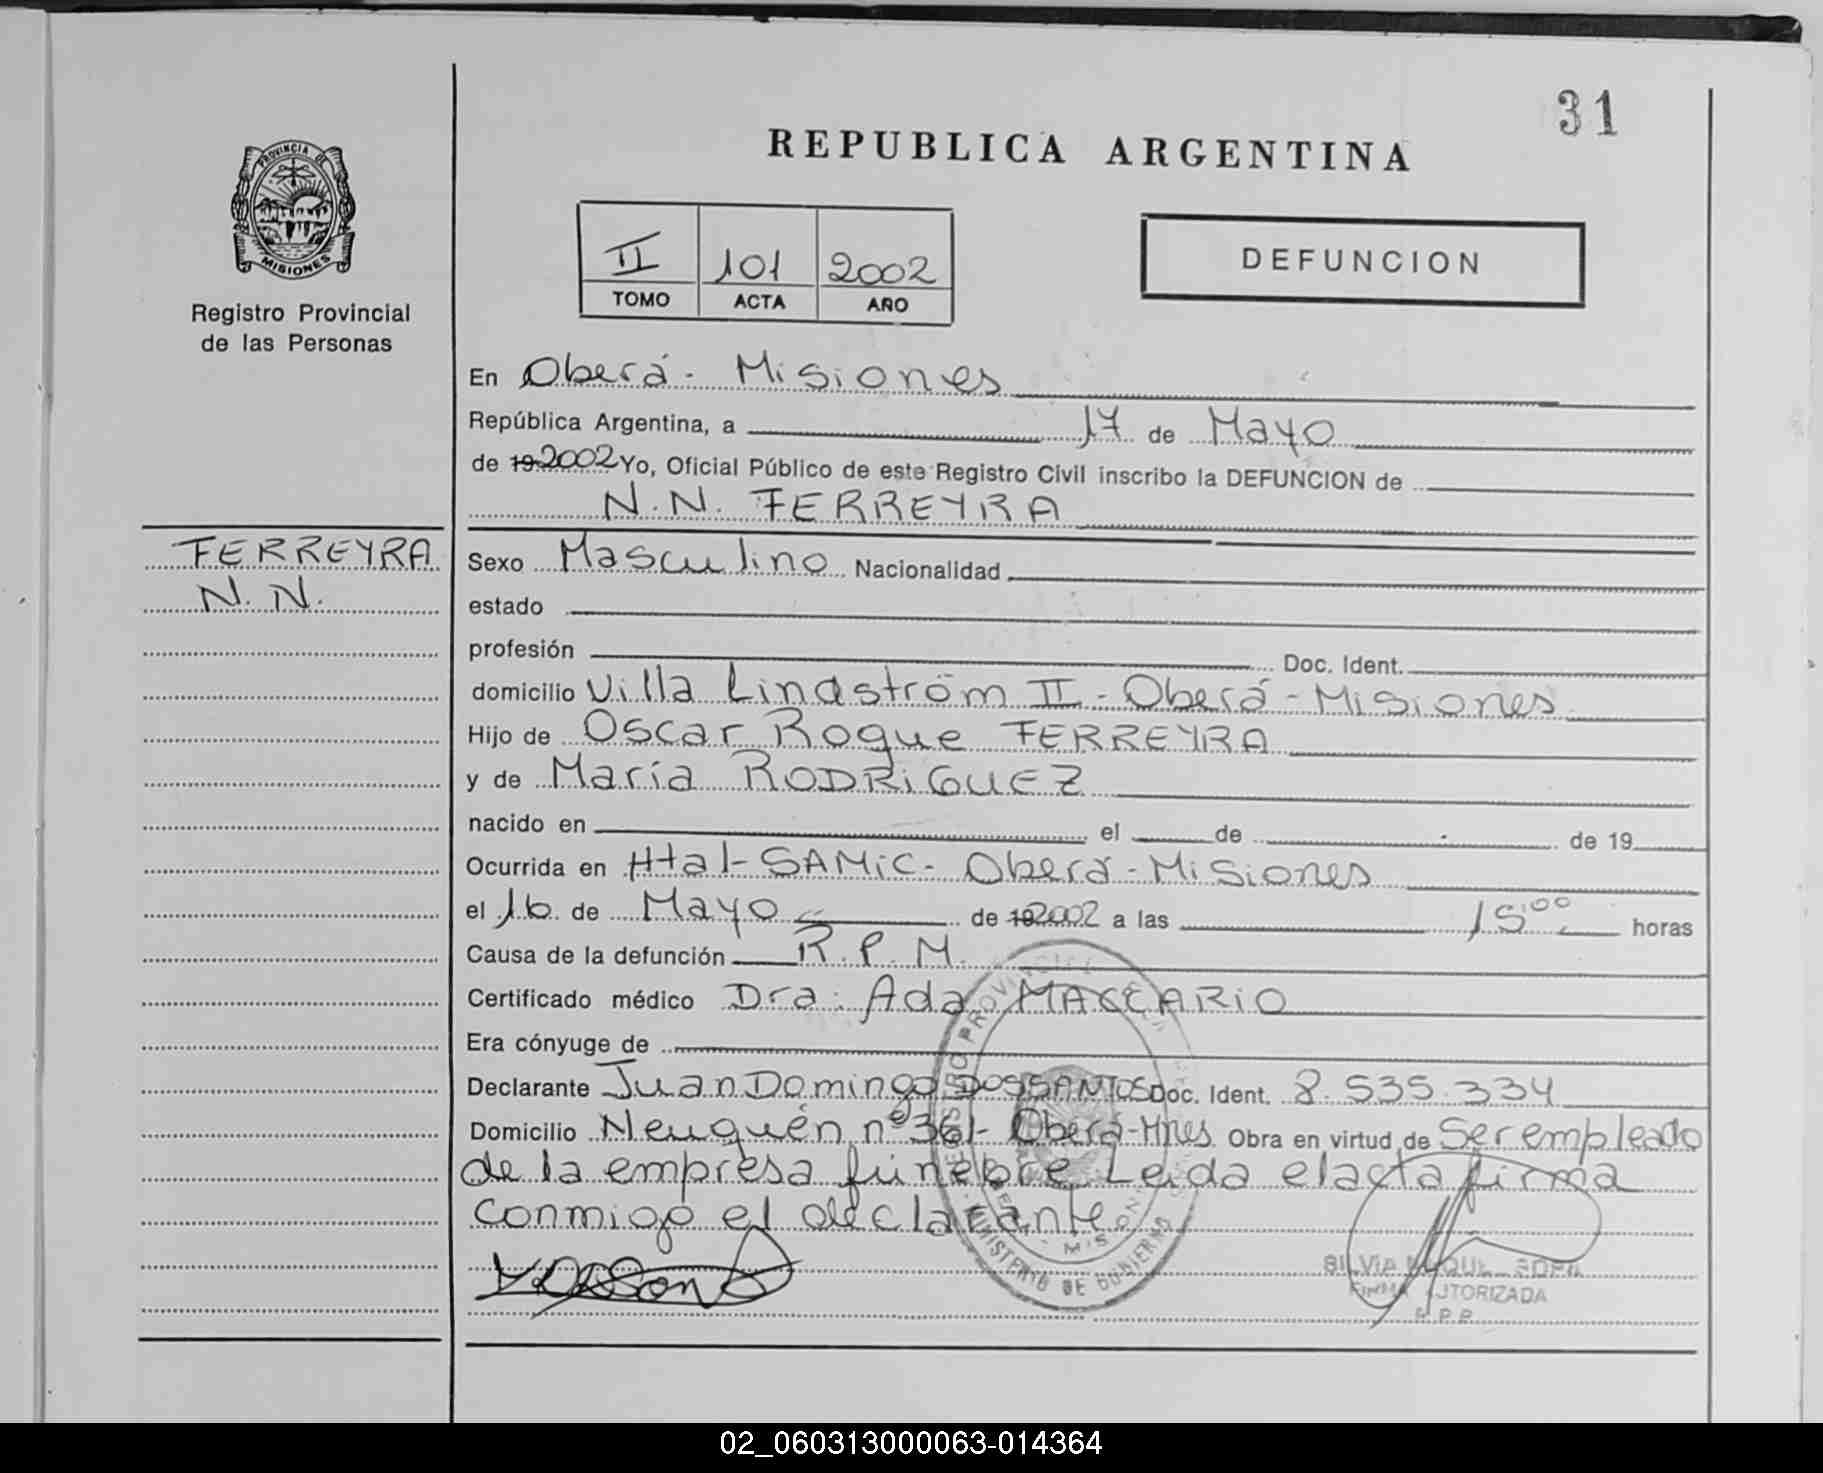 31
REPUBLICA ARGENTINA
PROVINCIA DE
MISIONES
Registro Provincial
de las Personas
II 101 2002
TOMO ACTA AÑO
DEFUNCION
En Oberá - Misiones
República Argentina, a 17 de Mayo
de 19 2002 Yo, Oficial Público de este Registro Civil inscribo la DEFUNCION de
N.N. FERREYRA
FERREYRA
N.N.
Sexo Masculino Nacionalidad
estado
profesión Doc. Ident.
domicilio Villa Lindström II - Oberá - Misiones
Hijo de Oscar Roque FERREYRA
y de María RODRiGUEZ
nacido en el de de 19
Ocurrida en Htal - SAMiC - Oberá - Misiones
el 16 de Mayo de 19 2002 a las 15:00 horas
Causa de la defunción R.P.M.
Certificado médico Dra. Ada MACCARiO
Era cónyuge de
Declarante Juan Domingo DOSSANTOS Doc. Ident. 8.535.334
Domicilio Neuquén nº 361 - Oberá - Mnes. Obra en virtud de Ser empleado
de la empresa fúnebre Leida el acta firma
conmigo el declarante
MINISTERIO DE GOBIERNO
SILVIA
FIRMA AUTORIZADA
R.P.P.
02_060313000063-014364